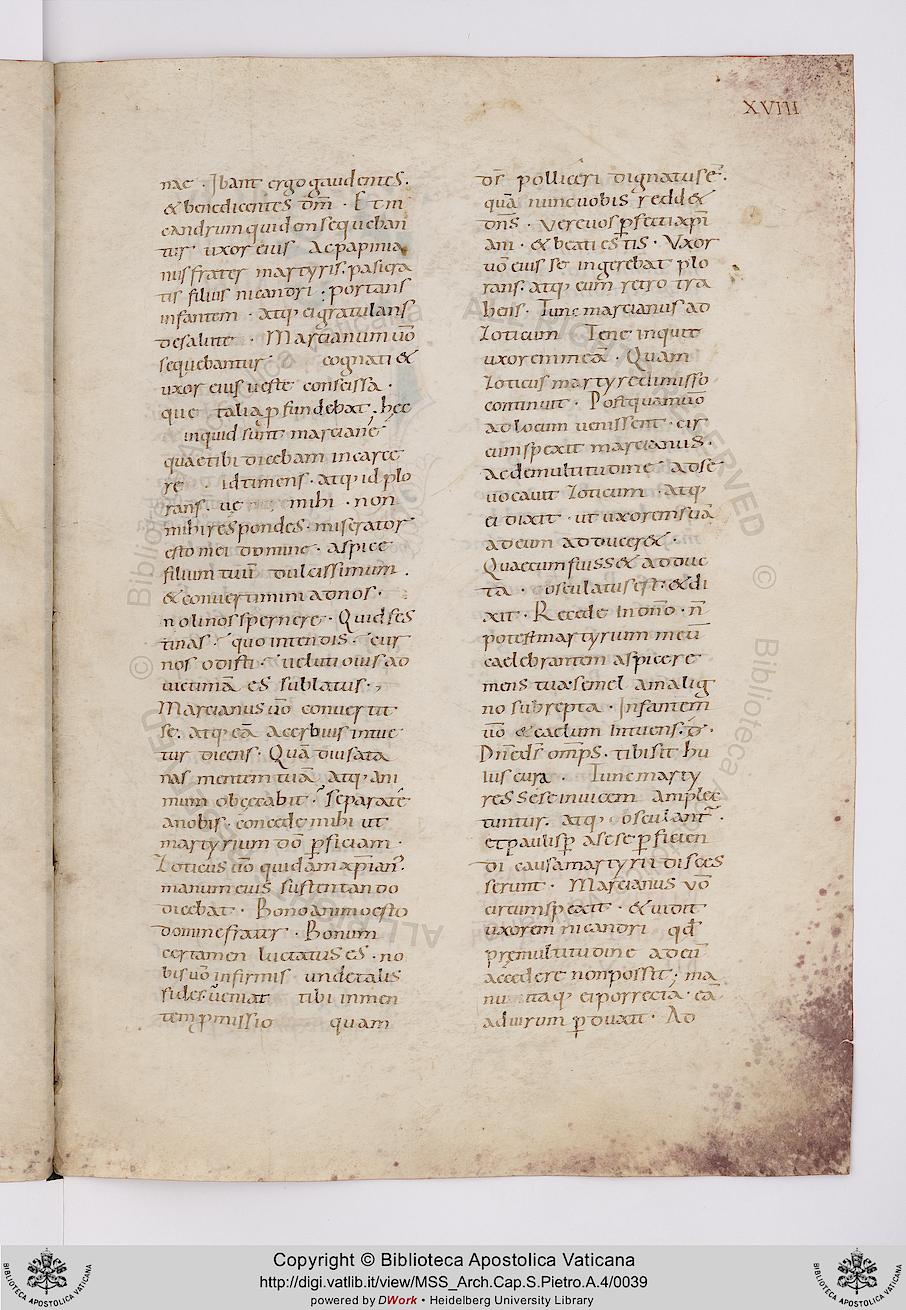 XVIII
nae . Ibant ergo gaudentes.
& benedicentes dm̄ . Et ni
candrum quidem sequeban
tur uxor eius Ac papinia
nus frater martyris. pasicra
tis filius nicandri . portans
infantem . atq; ei gratulans
de salute . Marcianum uō
sequebantur cognati &
uxor eius ueste conscissa .
que talia ꝑfundebat. hęc
inquid sunt marciane
quae tibi dicebam in carce
re id timens . atq; id plo
rans. ue mihi . non
mihi respondes . miserator
esto mei domine . aspice
filium tuū dulcissimum .
& conuertimini ad nos .
noli nos spernere . Quid fes
tinas . quo intendis . cur
nos odisti . ueluti ouis ad
uictimā es sublatus .
Marcianus uō conuertit
se. atq; eā acerbius intue
tur dicens . Quā diu sata
nas mentem tuā atq; ani
mum obcecabit . separate
a nobis . concede mihi ut
martyrium dō ꝑficiam .
Zoticus uō quidam xp̄ian'.
manum eius sustentando
dicebat . Bono animo esto
domine frater . Bonum
certamen luctatus es . no
bis uō infirmis unde talis
fides. ueniat tibi inmen
tem ꝓmissio quam
dn̄s polliceri dignatus ē .
quā nunc uobis redd&
dn̄s . Vere uos ꝑfecti xp̄i
ani . & beati estis . Vxor
uō eius se ingerebat plo
rans. atq; eum retro tra
hens . Tunc marcianus ad
Zoticum Tene inquit
uxorem meā . Quam
Zoticus martyre dimisso
continuit . Postquam uō
ad locum uenissent . cir
cumspexit marcianus .
ac de multitudine ad se
uocauit Zoticum . atq;
ei dixit . ut uxorem suā
ad eum adducer& .
Quae cum fuiss& adduc
ta . osculatus est . & di
xit . Recede in dn̄o . n̄
potest martyrium meū
caelebrantem aspicere
mens tua. semel a malig
no subrepta . Infantem
uō & caelum intuens.
Dn̄e ds̄ omp̄s . tibi sit hu
ius cura . Tunc marty
res sese inuicem amplec
tuntur. atq; osculant .
et paulisꝑ a se se ꝑficien
di causa martyrii disces
serunt . Marcianus uō
circumspexit . & uidit
uxorem nicandri qđ
prę multitudine ad eū
accedere non possit . ma
nu itaq; ei porrecta . eā
ad uirum ꝑduxit . Ad
Copyright © Biblioteca Apostolica Vaticana
http://digi.vatlib.it/view/MSS_Arch.Cap.S.Pietro.A.4/0039
powered by DWork • Heidelberg University Library
BIBLIOTECA APOSTOLICA VATICANA
BIBLIOTECA APOSTOLICA VATICANA